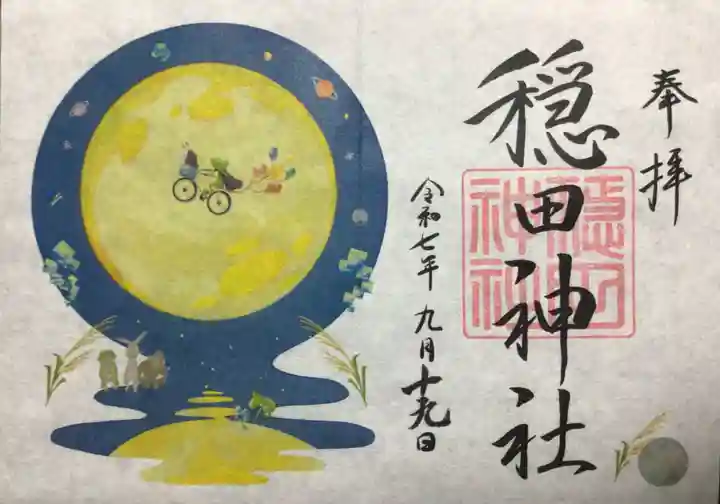 奉拝
穏田神社
穏田
神社
令和七年 九月十九日